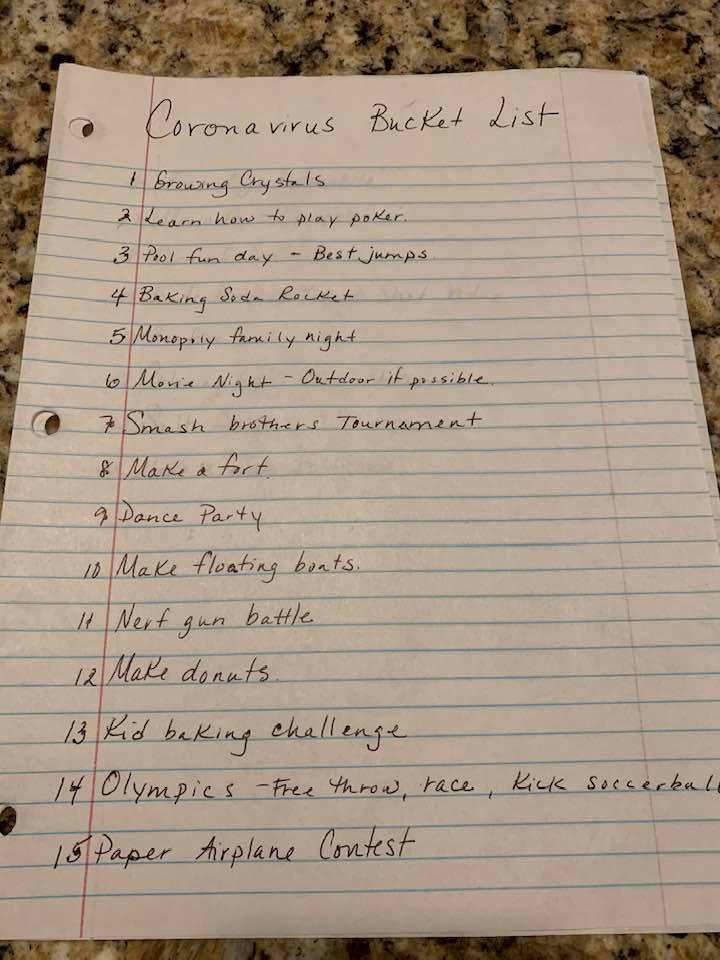 Coronavirus Bucket List
1 Growing Crystals
2 Learn how to play poker.
3 Pool fun day - Best jumps.
4 Baking Soda Rocket
5 Monopoly family night
6 Movie Night - Outdoor if possible.
7 Smash brothers Tournament
8 Make a fort.
9 Dance Party
10 Make floating boats.
11 Nerf gun battle
12 Make donuts.
13 Kid baking challenge
14 Olympics - Free throw, race, Kick soccerball
15 Paper Airplane Contest